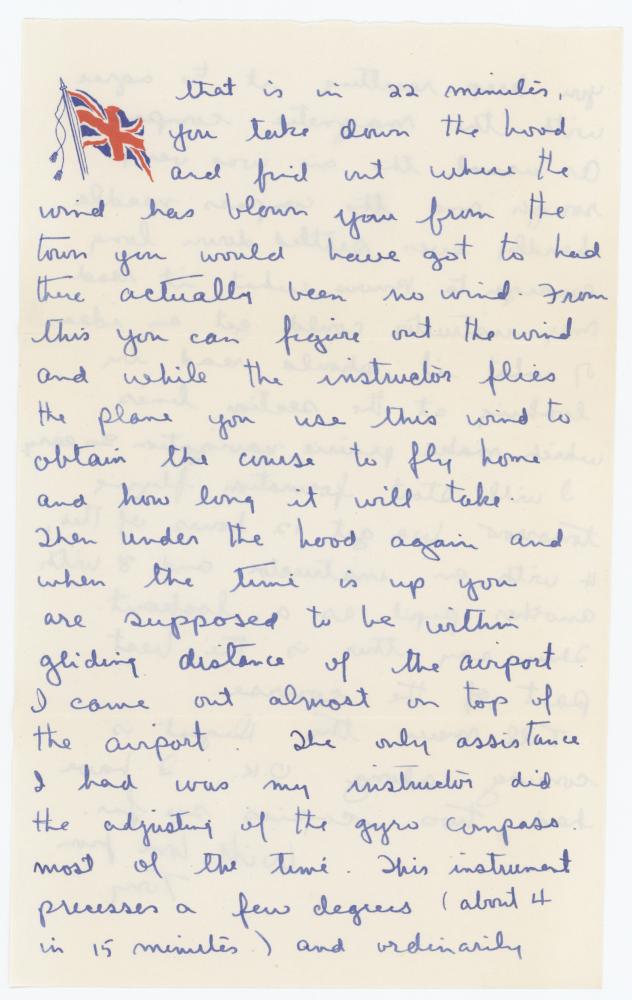 that is in 22 minutes,
you take down the hood
and find out where the
wind has blown you from the
town you would have got to had
there actually been no wind. From
this you can figure out the wind
and while the instructor flies
the plane you use this wind to
obtain the course to fly home
and how long it will take.
Then under the hood again and
when the time is up you
are supposed to be within
gliding distance of the airport.
I came out almost on top of
the airport. The only assistance
I had was my instructor did
the adjusting of the gyro compass.
most of the time. This instrument
precesses a few degrees (about 4
in 15 minutes) and ordinarily